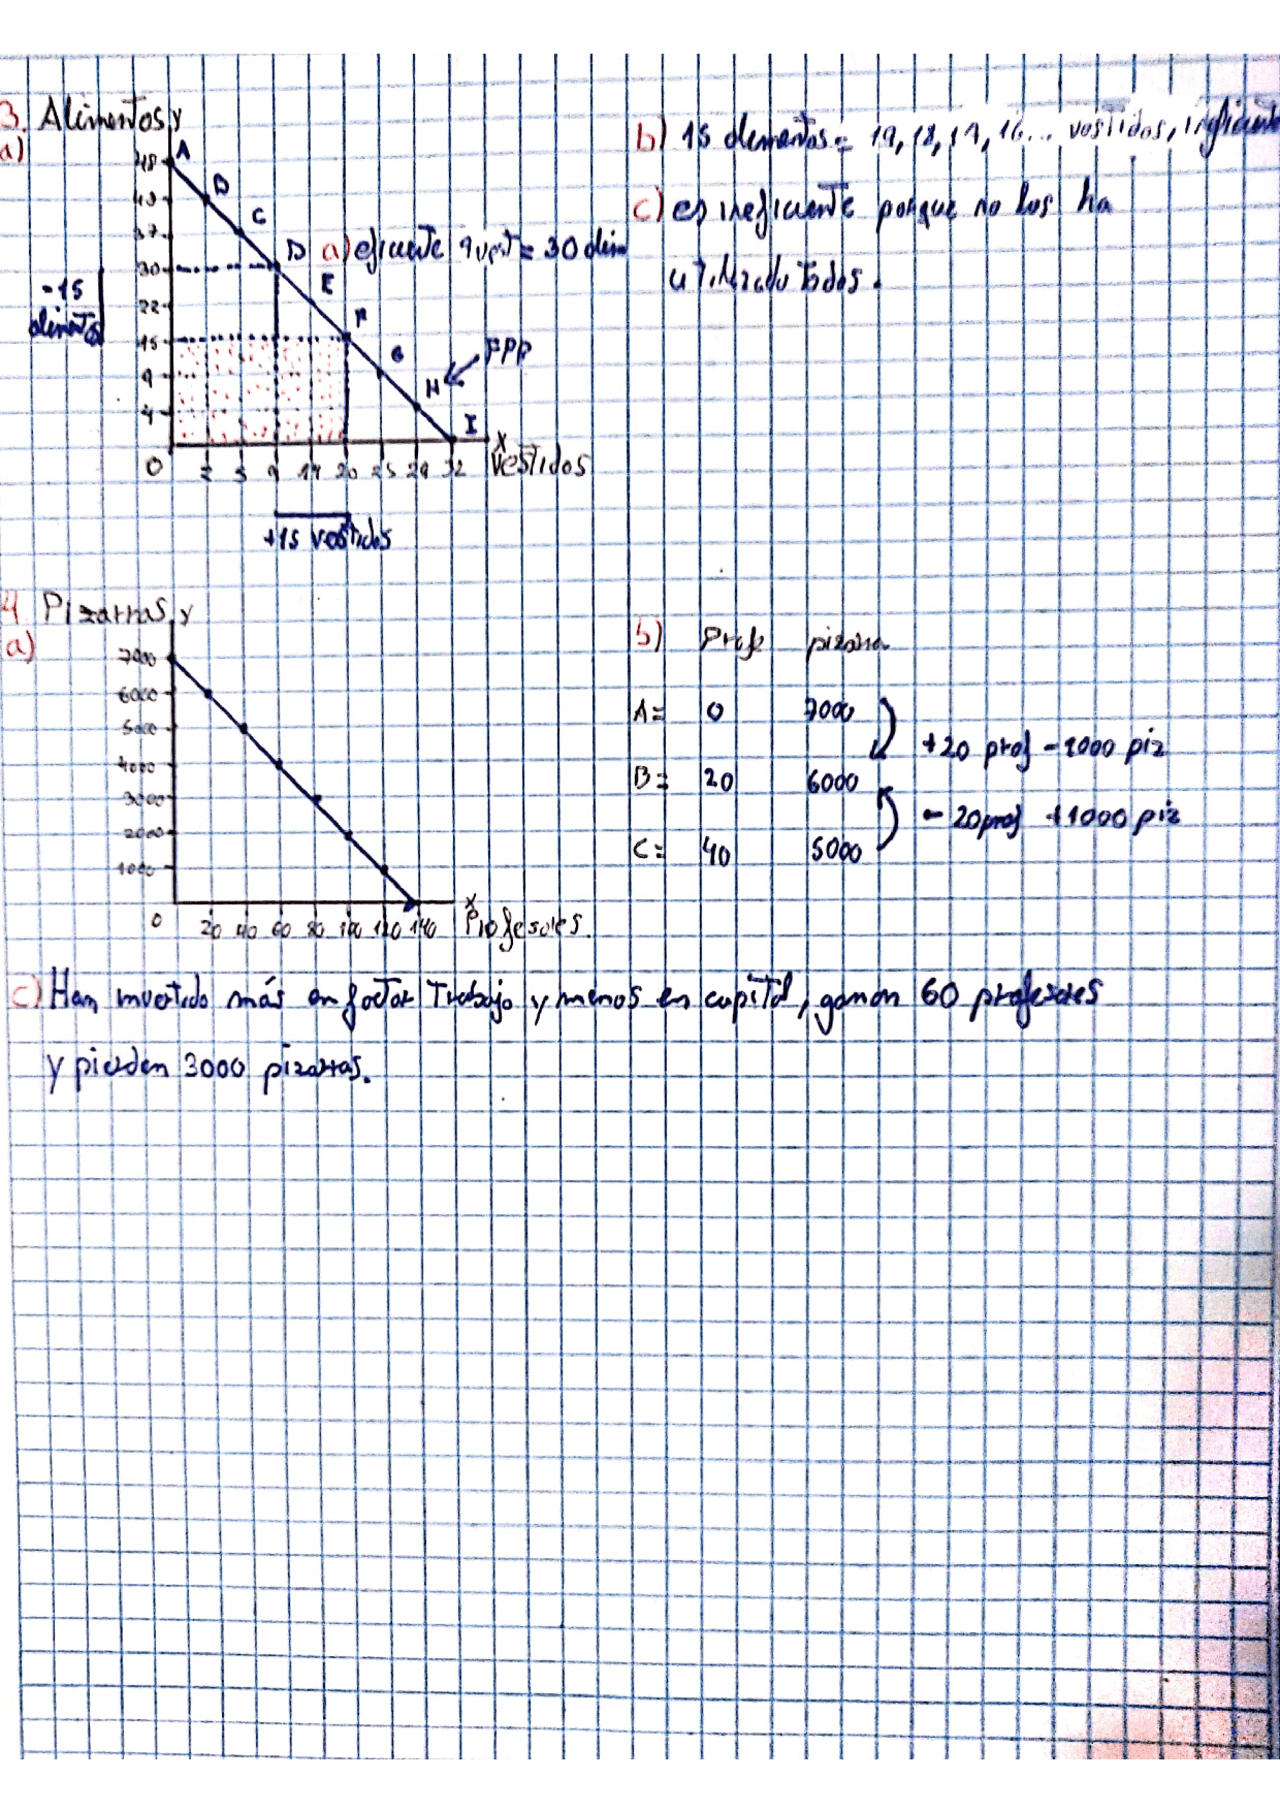 3. Alimentos y
a)
48 A
43 B
37 C
30 D a) eficiente 9 vest = 30 alim
22 E
15 F
9 G
4 H
I
FPP
-15
alimentos
0 2 5 9 14 20 25 29 32 x
Vestidos
+15 vestidos
b) 15 alimentos = 19, 18, 17, 16... vestidos, ineficiente
c) es ineficiente porque no los ha
utilizado todos.
4 Pizarras y
a)
7000
6000
5000
4000
3000
2000
1000
0 20 40 60 80 100 120 140 x
Profesores.
b) Profe pizarra
A= 0 7000
+20 prof -1000 piz
B= 20 6000
- 20 prof +1000 piz
C= 40 5000
c) Han invertido más en factor Trabajo y menos en capital, ganan 60 profesores
y pierden 3000 pizarras.